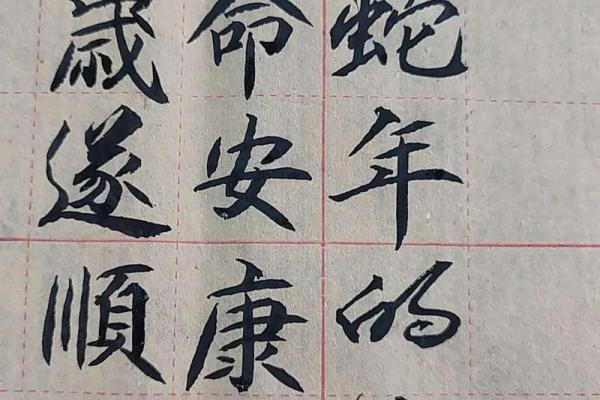 蛇年的
命安康
歲遂順